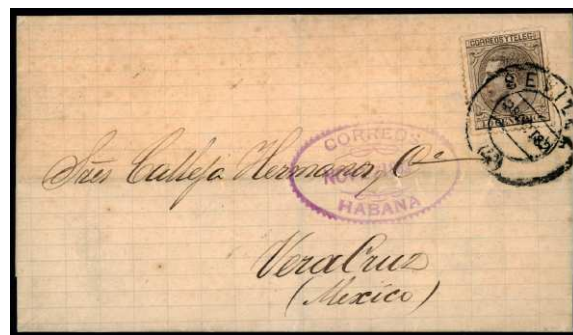 CORREOS Y TELEG
SEVILLA
CORREOS
HABANA
Sres Calleja Hermanos y Ca
VeraCruz
(Mexico)